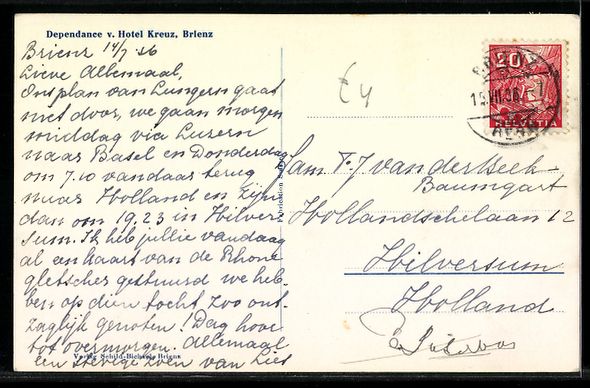 Dependance v. Hotel Kreuz, Brienz
Brienz 14/7 36
Lieve Allemaal,
Ons plan van Lungern gaat
niet door, we gaan morgen
middag via Luzern
naar Basel en Donderdag
om 7.10 vandaar terug
naar Holland en zijn
dan om 19.23 in Hilver-
sum. Ik heb jullie vandaag
al een kaart van de Rhone
gletscher gestuurd we heb-
ben op dien tocht zoo ont-
zaglijk genoten! Dag hoor
tot overmorgen. Allemaal
een stevige zoen van Lies
Verlag Schild-Bichsel, Brienz
20
HELVETIA
Fam. F. J. van der Beek-
Baumgart
Hollandschelaan 12
Hilversum
Holland